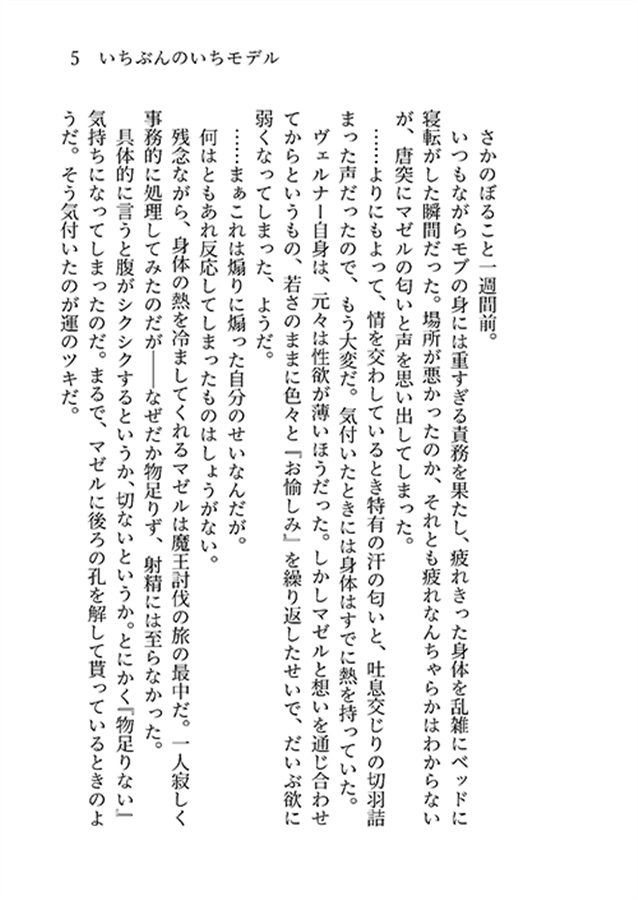 5 いちぶんのいちモデル
さかのぼること一週間前。
いつもながらモブの身には重すぎる責務を果たし、疲れきった身体を乱雑にベッドに
寝転がした瞬間だった。場所が悪かったのか、それとも疲れなんちゃらかはわからない
が、唐突にマゼルの匂いと声を思い出してしまった。
……よりにもよって、情を交わしているとき特有の汗の匂いと、吐息交じりの切羽詰
まった声だったので、もう大変だ。気付いたときには身体はすでに熱を持っていた。
ヴェルナー自身は、元々は性欲が薄いほうだった。しかしマゼルと想いを通じ合わせ
てからというもの、若さのままに色々と『お愉しみ』を繰り返したせいで、だいぶ欲に
弱くなってしまった、ようだ。
……まぁこれは煽りに煽った自分のせいなんだが。
何はともあれ反応してしまったものはしょうがない。
残念ながら、身体の熱を冷ましてくれるマゼルは魔王討伐の旅の最中だ。一人寂しく
事務的に処理してみたのだが――なぜだか物足りず、射精には至らなかった。
具体的に言うと腹がシクシクするというか、切ないというか。とにかく『物足りない』
気持ちになってしまったのだ。まるで、マゼルに後ろの孔を解して貰っているときのよ
うだ。そう気付いたのが運のツキだ。